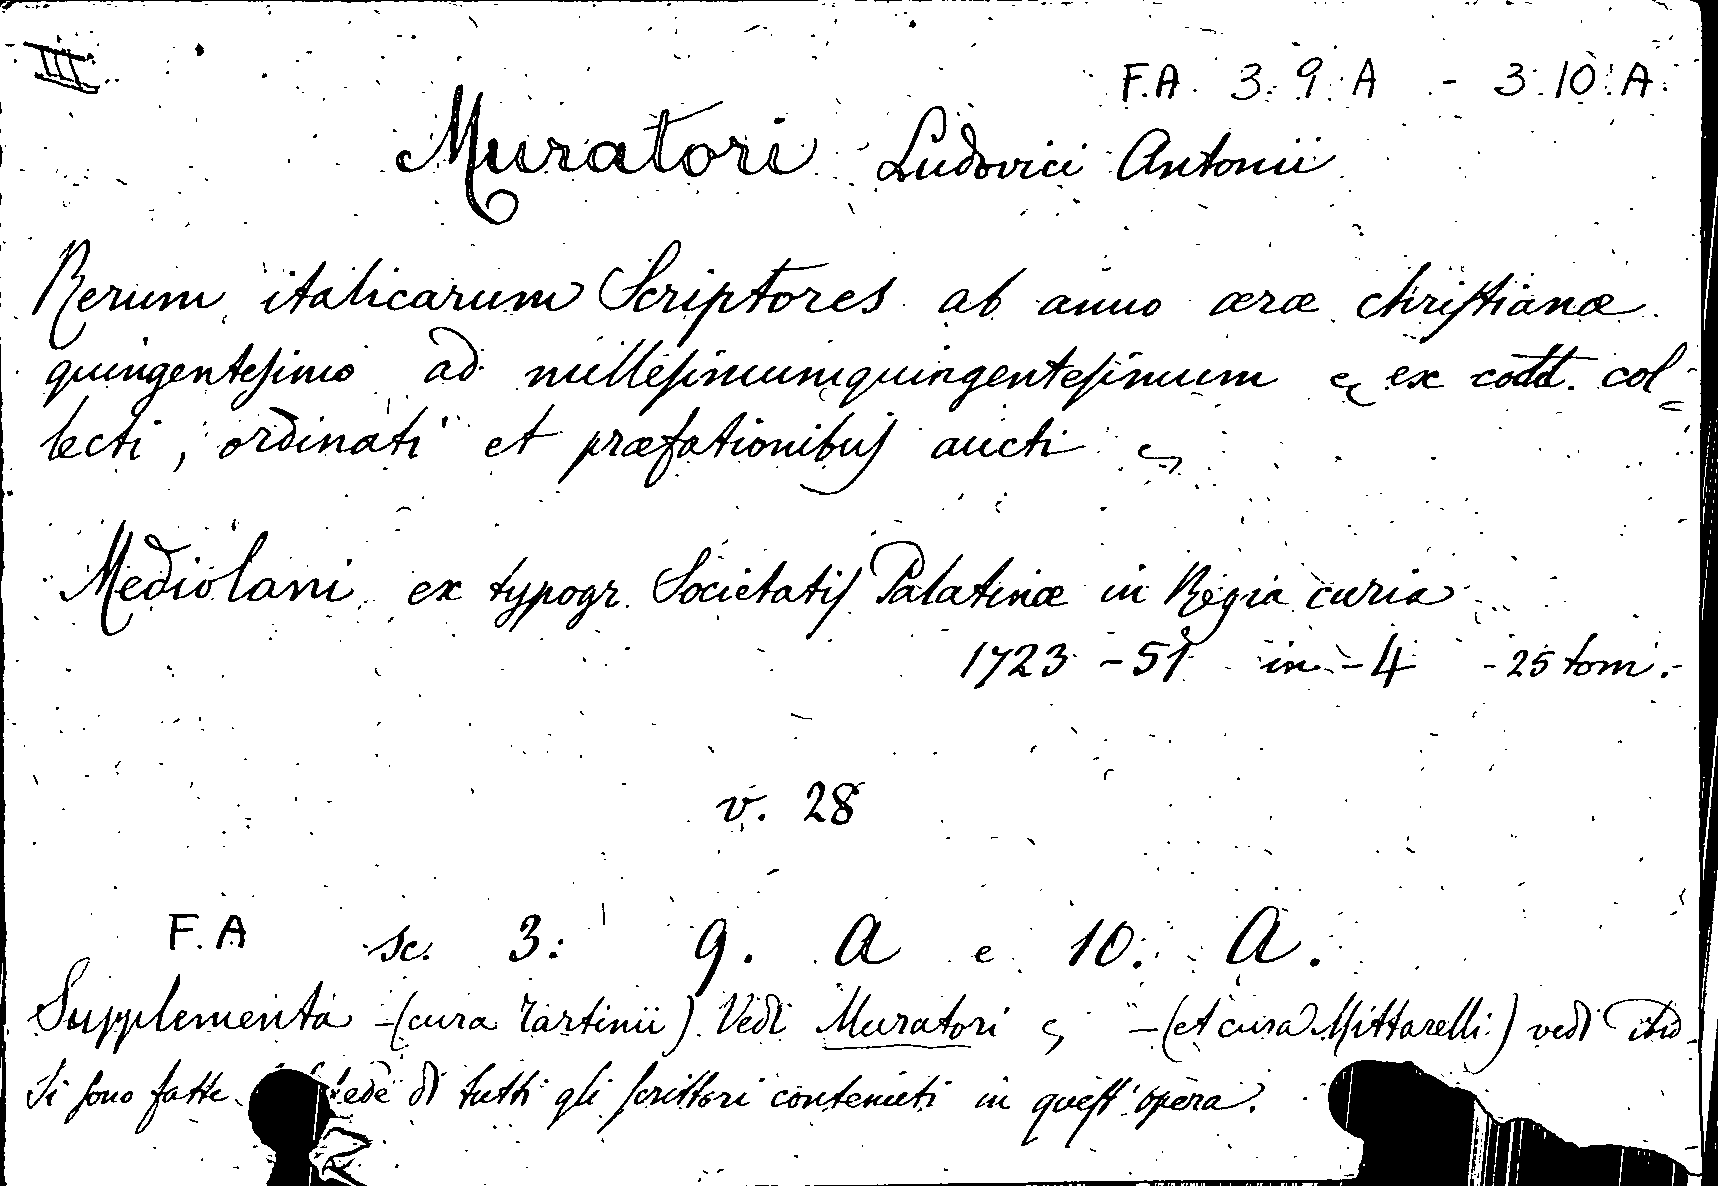 III
F.A. 3. 9. A - 3. 10. A.
Muratori Ludovici Antonii
Rerum italicarum Scriptores ab anno æræ christianæ
quingentesimo ad millesimumquingentesimum & ex codd. col=
lecti, ordinati et præfationibus aucti &
Mediolani ex typogr. Societatis Palatinæ in Regia curia
1723 - 51 in - 4 - 25 tom. -
v. 28
F. A sc. 3: 9. A e 10. A.
Supplementa - (cura Tartinii) Vedi Muratori & - (et cura Mittarelli) vedi ibid.
Si sono fatte di tutti gli scrittori contenuti in quest' opera.